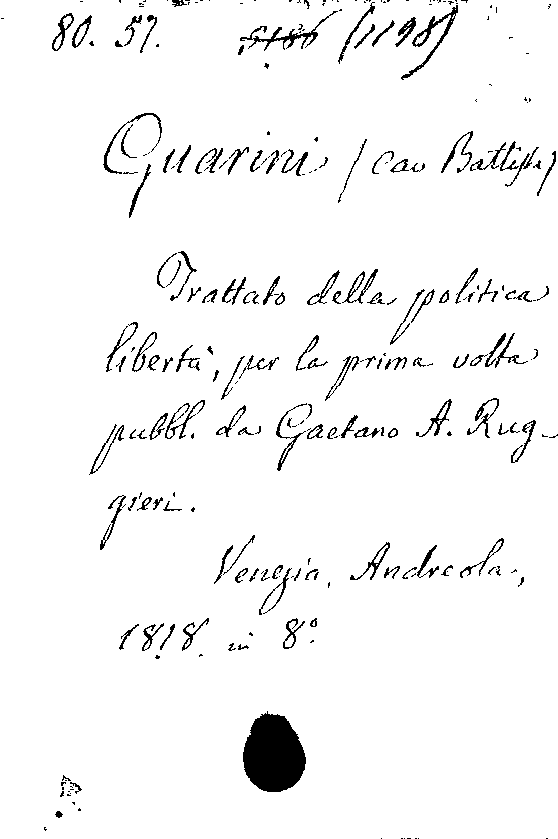 80. 57. 5186 (1198)
Guarini (cav Battista)
Trattato della politica
libertà, per la prima volta
pubbl. da Gaetano A. Rug-
gieri.
Venezia, Andreola,
1818. in 8º